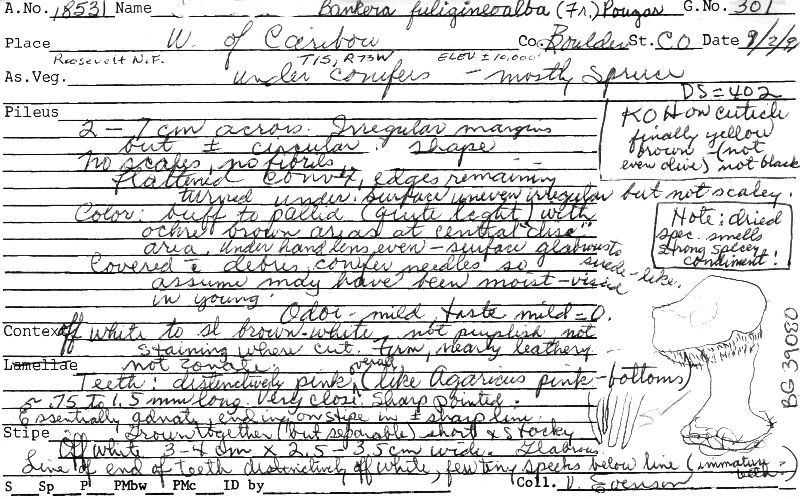 A.No. 18531 Name Bankera fuligineoalba (Fr.) Pouzar G.No. 301
Place W. of Caribou Co. Boulder St. CO Date 9/2/9
Roosevelt N.F. T1S, R73W ELEV ± 10,000'
As.Veg. under conifers - mostly Spruce
DS = 402
Pileus
KOH on cuticle
finally yellow
brown (not
even olive) not black
2 - 7 cm across. Irregular margins
but ± circular shape
no scales, no fibrils
flattened convex, edges remaining
turned under. surface uneven irregular but not scaley.
Color: buff to pallid (quite light) with
ochre brown areas at central "disc"
area. Under hand lens, even - surface glabrous to
suede-like.
Note: dried
spec. smells
strong spicey
condiment!
Covered c̄ debris, conifer needles so
assume may have been moist - viscid
in young.
Odor - mild, taste mild = 0.
Context off white to sl brown-white not purplish not
staining where cut. Firm, nearly leathery
not zonate.
Lamellae
Teeth: distinctively pink, overall (like Agaricus pink-bottoms)
~ .75 to 1.5 mm long. Very close. Sharp pointed.
Essentially adnate, ending on stipe in ± sharp line.
Stipe Grown together (but separable) short & stocky
Off white 3-4 cm x 2.5 - 3.5 cm wide. Glabrous
Line of end of teeth distinctively off white, few tiny specks below line (immature teeth.)
S Sp P PMbw PMc ID by Coll. V. Evenson
BG 39080